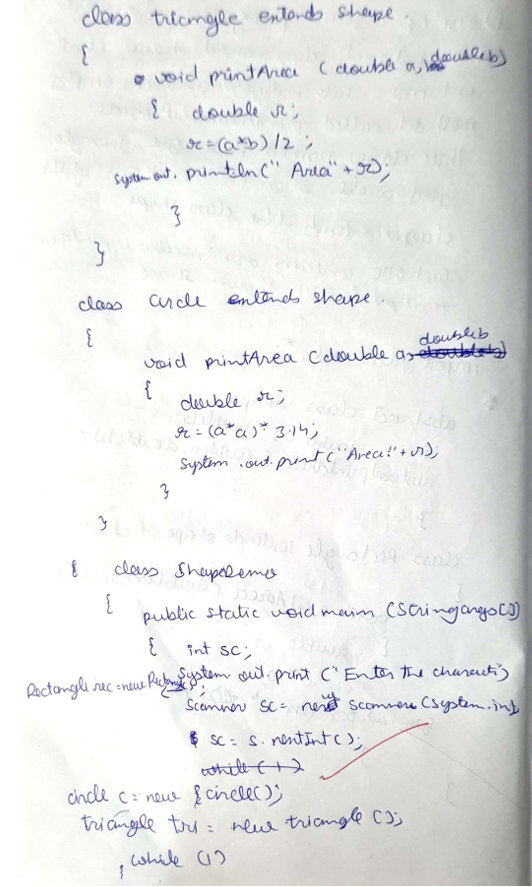 class triangle extends shape.
{
void printArea (double a, double b)
{ double r;
r=(a*b)/2 ;
system out. println(" Area" + r);
}
}
class circle extends shape.
{
void printArea (double a, double b
{
double r;
r=(a*a)* 3.14;
system .out. print ("Area:"+r);
}
}
{ class ShapeDemo
{
public static void main (String args[])
{ int sc;
System out. print ("Enter the character")
Rectangle rec = new Rectangle ;
Scanner sc = new scanner (system.in)
sc = s. nextInt();
while (1)
circle c = new circle();
triangle tri = new triangle ();
while (1)